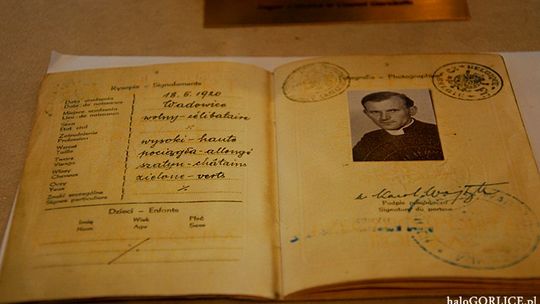 Rysopis - Signalements
Data urodzenia
Date de naissance
18. 5. 1920
Miejsce urodzenia
Lieu de naissance
Wadowice
Stan
Etat civil
wolny - célibataire
Zatrudnienie
Profession
Wzrost
Taille
wysoki - haute
Twarz
Visage
pociągła - allongé
Włosy
Cheveux
szatyn - châtain
Oczy
Yeux
zielone - verts
Znaki szczególne
Signes particuliers
Dzieci - Enfants
Imię Wiek Płeć
Nom Age Sexe
Fotografia - Photographie
Karol Wojtyła
Podpis
Signature du porteur
haloGORLICE.pl